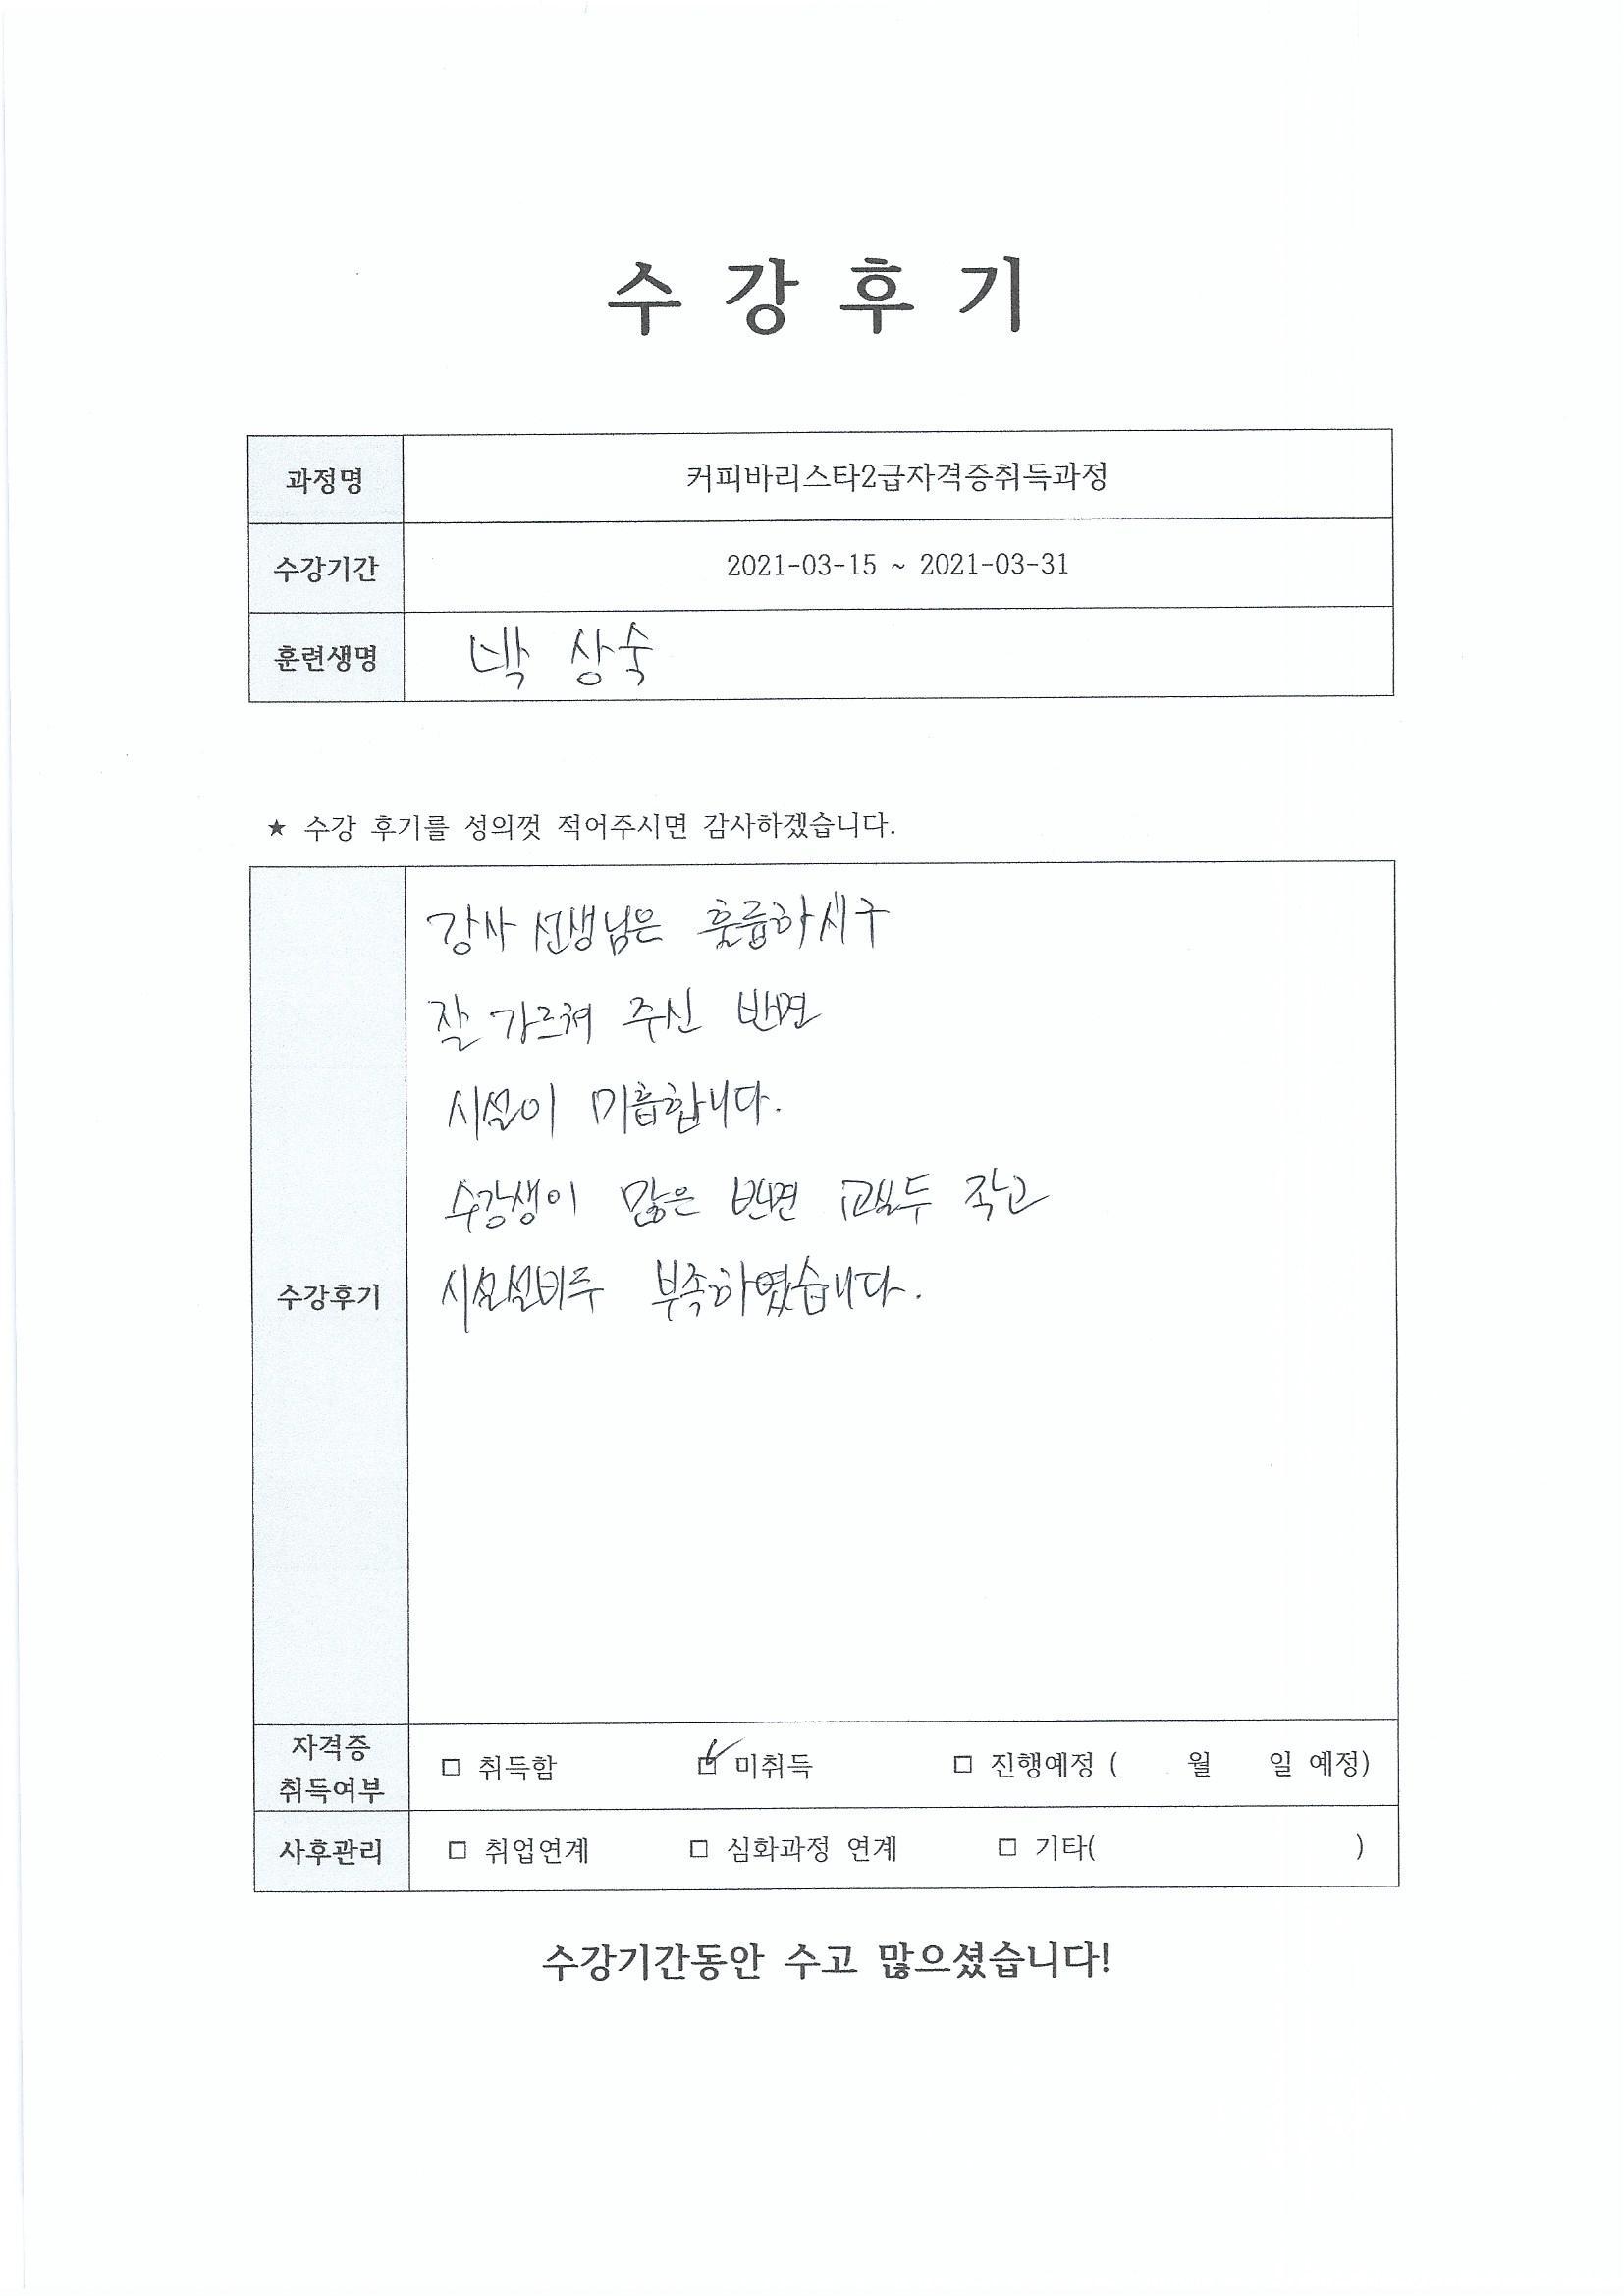 수 강 후 기
과정명 커피바리스타2급자격증취득과정
수강기간 2021-03-15 ~ 2021-03-31
훈련생명 박 상숙
★ 수강 후기를 성의껏 적어주시면 감사하겠습니다.
강사 선생님은 훌륭하시구
잘 가르쳐 주신 반면
시설이 미흡합니다.
수강생이 많은 반면 교실두 작고
수강후기
시설설비두 부족하였습니다.
자격증
취득여부
□ 취득함 ☑ 미취득 □ 진행예정 ( 월 일 예정)
사후관리 □ 취업연계 □ 심화과정 연계 □ 기타( )
수강기간동안 수고 많으셨습니다!